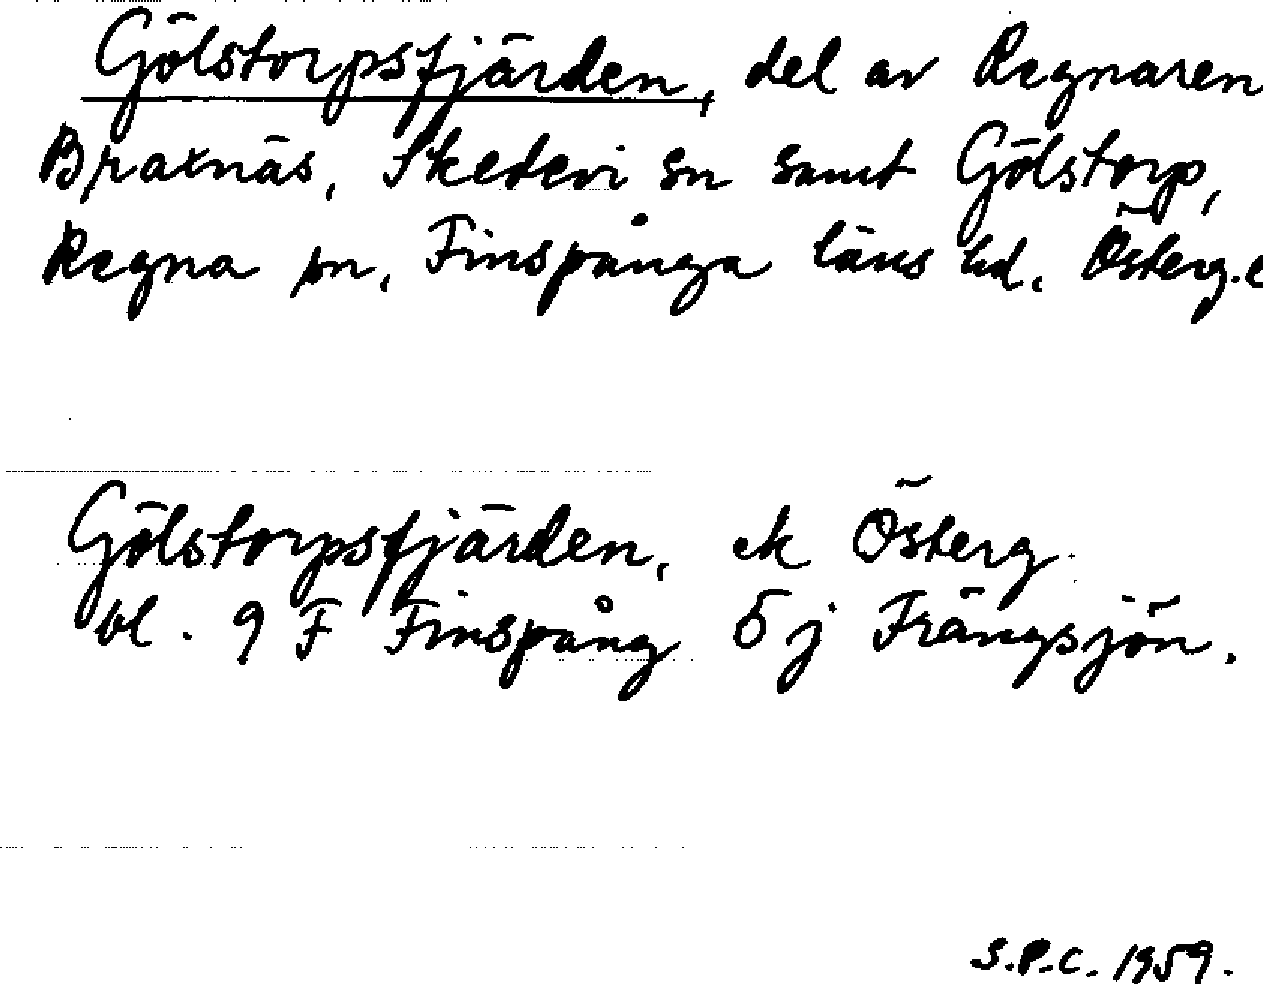 Gölstorpsfjärden, del av Regnaren
Braxnäs, Skedevi sn samt Gölstorp,
Regna sn, Finspånga läns hd. Österg.
Gölstorpsfjärden, ek Österg.
bl. 9 F Finspång 5 j Trängsjön.
S.P.C. 1959.